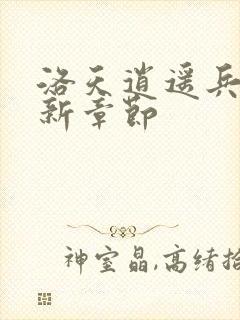 洛天逍遥兵
新章节
神室晶,高绪拾